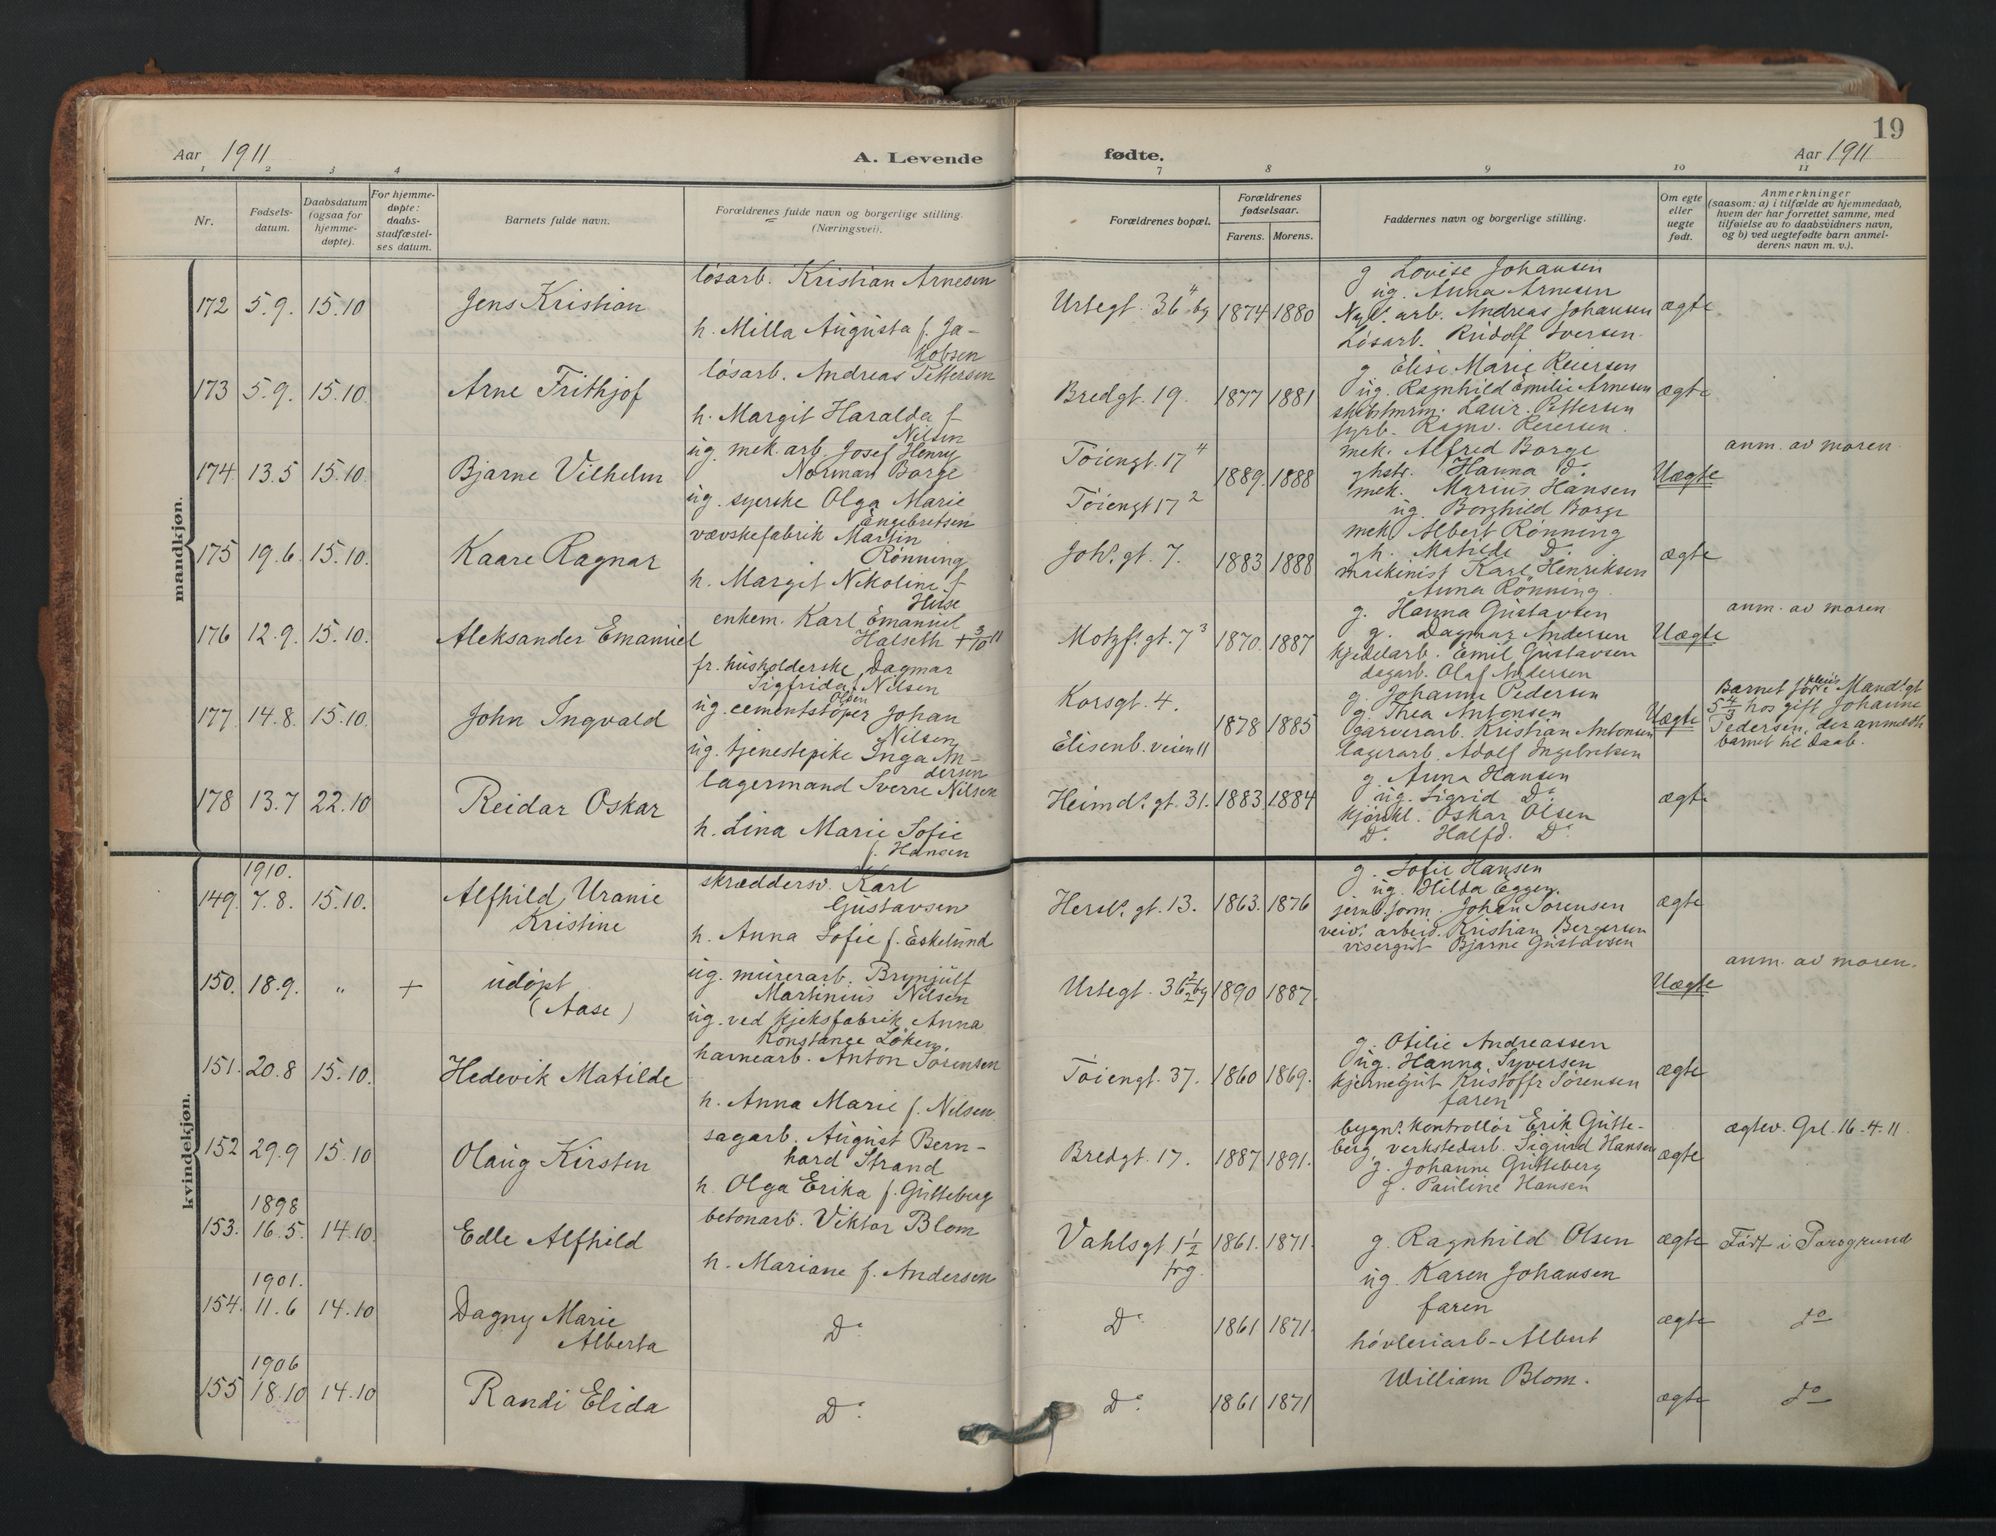 19
Aar 1911
A. Levende
fødte.
Aar 1911
1 2 3 4 7 8 9 10 11
Nr.
Fødsels-
datum.
Daabsdatum
(ogsaa for
hjemme-
døpte).
For hjemme-
døpte:
daabs-
stadfæstel-
ses datum.
Barnets fulde navn.
Forældrenes fulde navn og borgerlige stilling.
(Næringsvei).
Forældrenes bopæl.
Forældrenes
fødselsaar.
Farens. Morens.
Faddernes navn og borgerlige stilling.
Om egte
eller
uegte
født.
Anmerkninger
(saasom: a) i tilfælde av hjemmedaab,
hvem der har forrettet samme, med
tilføielse av to daabsvidners navn,
og b) ved uegtefødte barn anmel-
derens navn m. v.).
mandkjøn.
172 5.9. 15.10 Jens Kristian
løsarb. Kristian Arnesen
h. Milla Augusta f. Ja-
kobsen
Urtegt. 36 4 bg 1874 1880
g Lovise Johansen
ug. Anna Arnesen
Nyl. arb. Andreas Johansen
Løsarb. Rudolf Iversen.
ægte
173 5.9. 15.10. Arne Frithjof
løsarb. Andreas Pettersen
h. Margit Haralda f
Nilsen
Bredgt. 19. 1877 1881
g. Elise Marie Reiersen
ug. Ragnhild Emilie Arnesen
skibstmrm. Laur. Pettersen
fyrb. Ragnv. Reiersen.
ægte
174 13.5 15.10. Bjarne Vilhelm
ug. mek. arb. Josef Henry
Norman Borge
ug. syerske Olga Marie
Engebretsen
Tøiengt. 17 4
Tøiengt 17 2
1889. 1888
mek. Alfred Borge
ghstr. Hanna Do
mek. Marius Hansen
ug. Borghild Borge
Uægte
anm. av moren.
175 19.6. 15.10. Kaare Ragnar
vævskefabrik Martin
Rønning
h. Margit Nikoline f
Huse
Johs. gt. 7. 1883 1888
mek. Albert Rønning
gh. Matilde Do.
maskinist Karl Henriksen
Anna Rønning.
ægte
176 12.9. 15.10. Aleksander Emanuel
enkem. Karl Emanuel
Halseth + 3/10 11
fr. husholderske Dagmar
Sigfrida f Nilsen
Motzf. gt. 7 3 1870. 1887
g. Hanna Gustavsen
g. Dagmar Andersen
kjedelarb. Emil Gustavsen
dagarb. Olaf Andersen
Uægte
anm. av moren
177. 14.8. 15.10. John Ingvald
Olsen
ug. cementstøper Johan
Nilsen
ug. tjenestepike Inga An-
dersen
Korsgt. 4.
Elisenb. veien 11
1878 1885
g. Johanne Pedersen
g. Thea Antonsen
garverarb. Kristian Antonsen
lagerarb. Adolf Ingebretsen
Uægte
Barnet føtt i Mands. gt
5 4/3 hos gift Johanne
Pedersen, der anmeldte
barnet til Daab.
178 13.7 22.10 Reidar Oskar
lagermand Sverre Nilsen
h. Lina Marie Sofie
f. Hansen
Heimds. gt. 31. 1883 1884
g. Anna Hansen
ug. Sigrid Do.
Oskar Olsen
Do Halfd. Do
ægte
kvindekjøn.
1910.
149. 7.8. 15.10. Alfhild Uranie
Kristine
skræddersv. Karl
Gustavsen
h. Anna Sofie f. Eskelund
Hersl. gt. 13. 1863. 1876
g. Sofie Hansen
ug. Hilda Eggen.
jernb. form. Johan Sørensen
veiv. arbeid. Kristian Bergersen
visergut Bjarne Gustavsen
ægte
150. 18.9. " + udøpt
(Aase)
ug. murerarb. Brynjulf
Martinius Nilsen
ug. ved kjeksfabrik Anna
Konstanse Løken.
Urtegt. 36 2/2 bg 1890 1887.
Uægte
anm. av moren.
151. 20.8 15.10. Hedevik Matilde
havnearb. Anton Sørensen
h. Anna Marie f. Nilsen
Tøiengt. 37. 1860 1869.
g. Otilie Andreassen
ug. Hanna Syversen
kjernegut Kristoffr Sørensen
faren
ægte
152 29.9 15.10 Olaug Kirsten
sagarb. August Bern-
hard Strand
h. Olga Erika f. Gutteberg
Bredgt. 17. 1887 1891.
bygn. kontrollør Erik Gutte-
berg, verkstedarb. Sigurd Hansen
g. Johanne Gutteberg
g. Pauline Hansen
ægte
ægtev. Grl. 16.4.11.
1898
153. 16.5. 14.10. Edle Alfhild
betonarb. Viktor Blom
h. Mariane f. Andersen
Vahlsgt 1 1/2
frg.
1861. 1871.
g. Ragnhild Olsen
ug. Karen Johansen
ægte
Født i Porsgrund
1901.
154. 11.6 14.10 Dagny Marie
Alberta
Do
Do
1861 1871.
faren
høvleriarb. Albert
ægte
do
1906
155 18.10 14.10 Randi Elida
Do
Do.
1861 1871
William Blom.
ægte
do